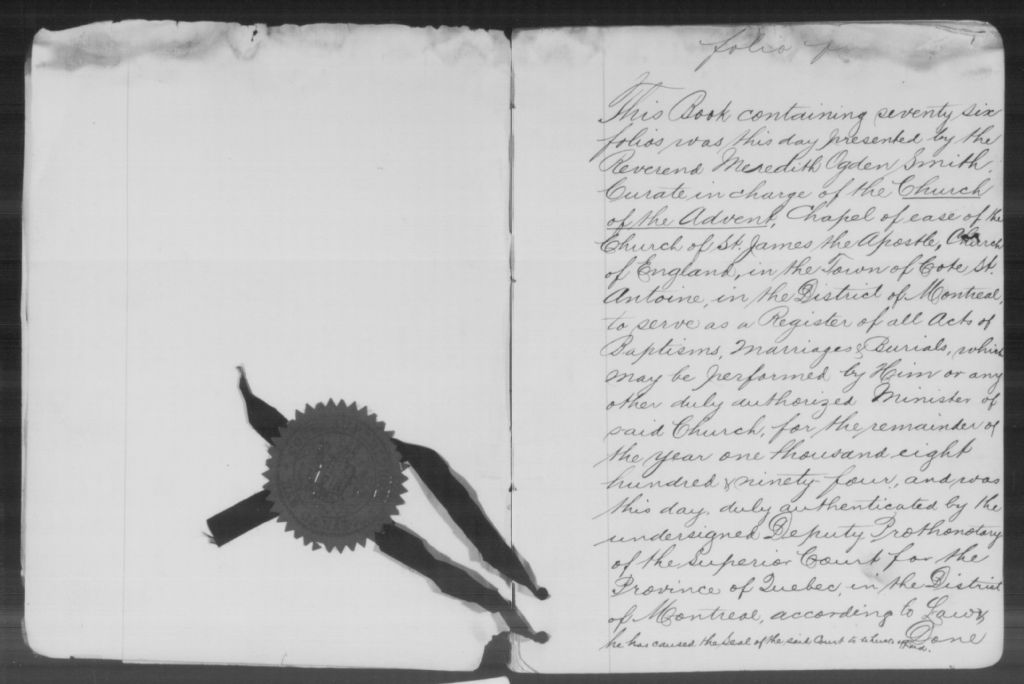 folio
This Book containing seventy six
folios, was this day presented by the
Reverend Meredith Ogden Smith,
Curate in charge of the Church
of the Advent, Chapel of ease of the
Church of St. James the Apostle, Church
of England, in the Town of Cote St.
Antoine, in the District of Montreal,
to serve as a Register of all Acts of
Baptisms, Marriages & Burials, which
may be performed by Him or any
other duly authorized Minister of
said Church, for the remainder of
the year one thousand eight
hundred & ninety four, and was
this day, duly authenticated by the
undersigned Deputy Prothonotary
of the Superior Court for the
Province of Quebec, in the District
of Montreal, according to Law &
he has caused the Seal of the said Court to
Done